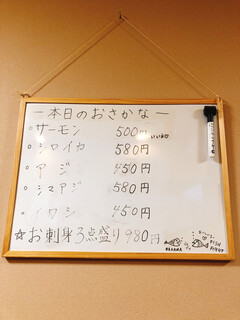 ー本日のおさかなー
○サーモン 500円
○シロイカ 580円
○アジ 450円
○シマアジ 580円
○イワシ 450円
☆お刺身3点盛り980円